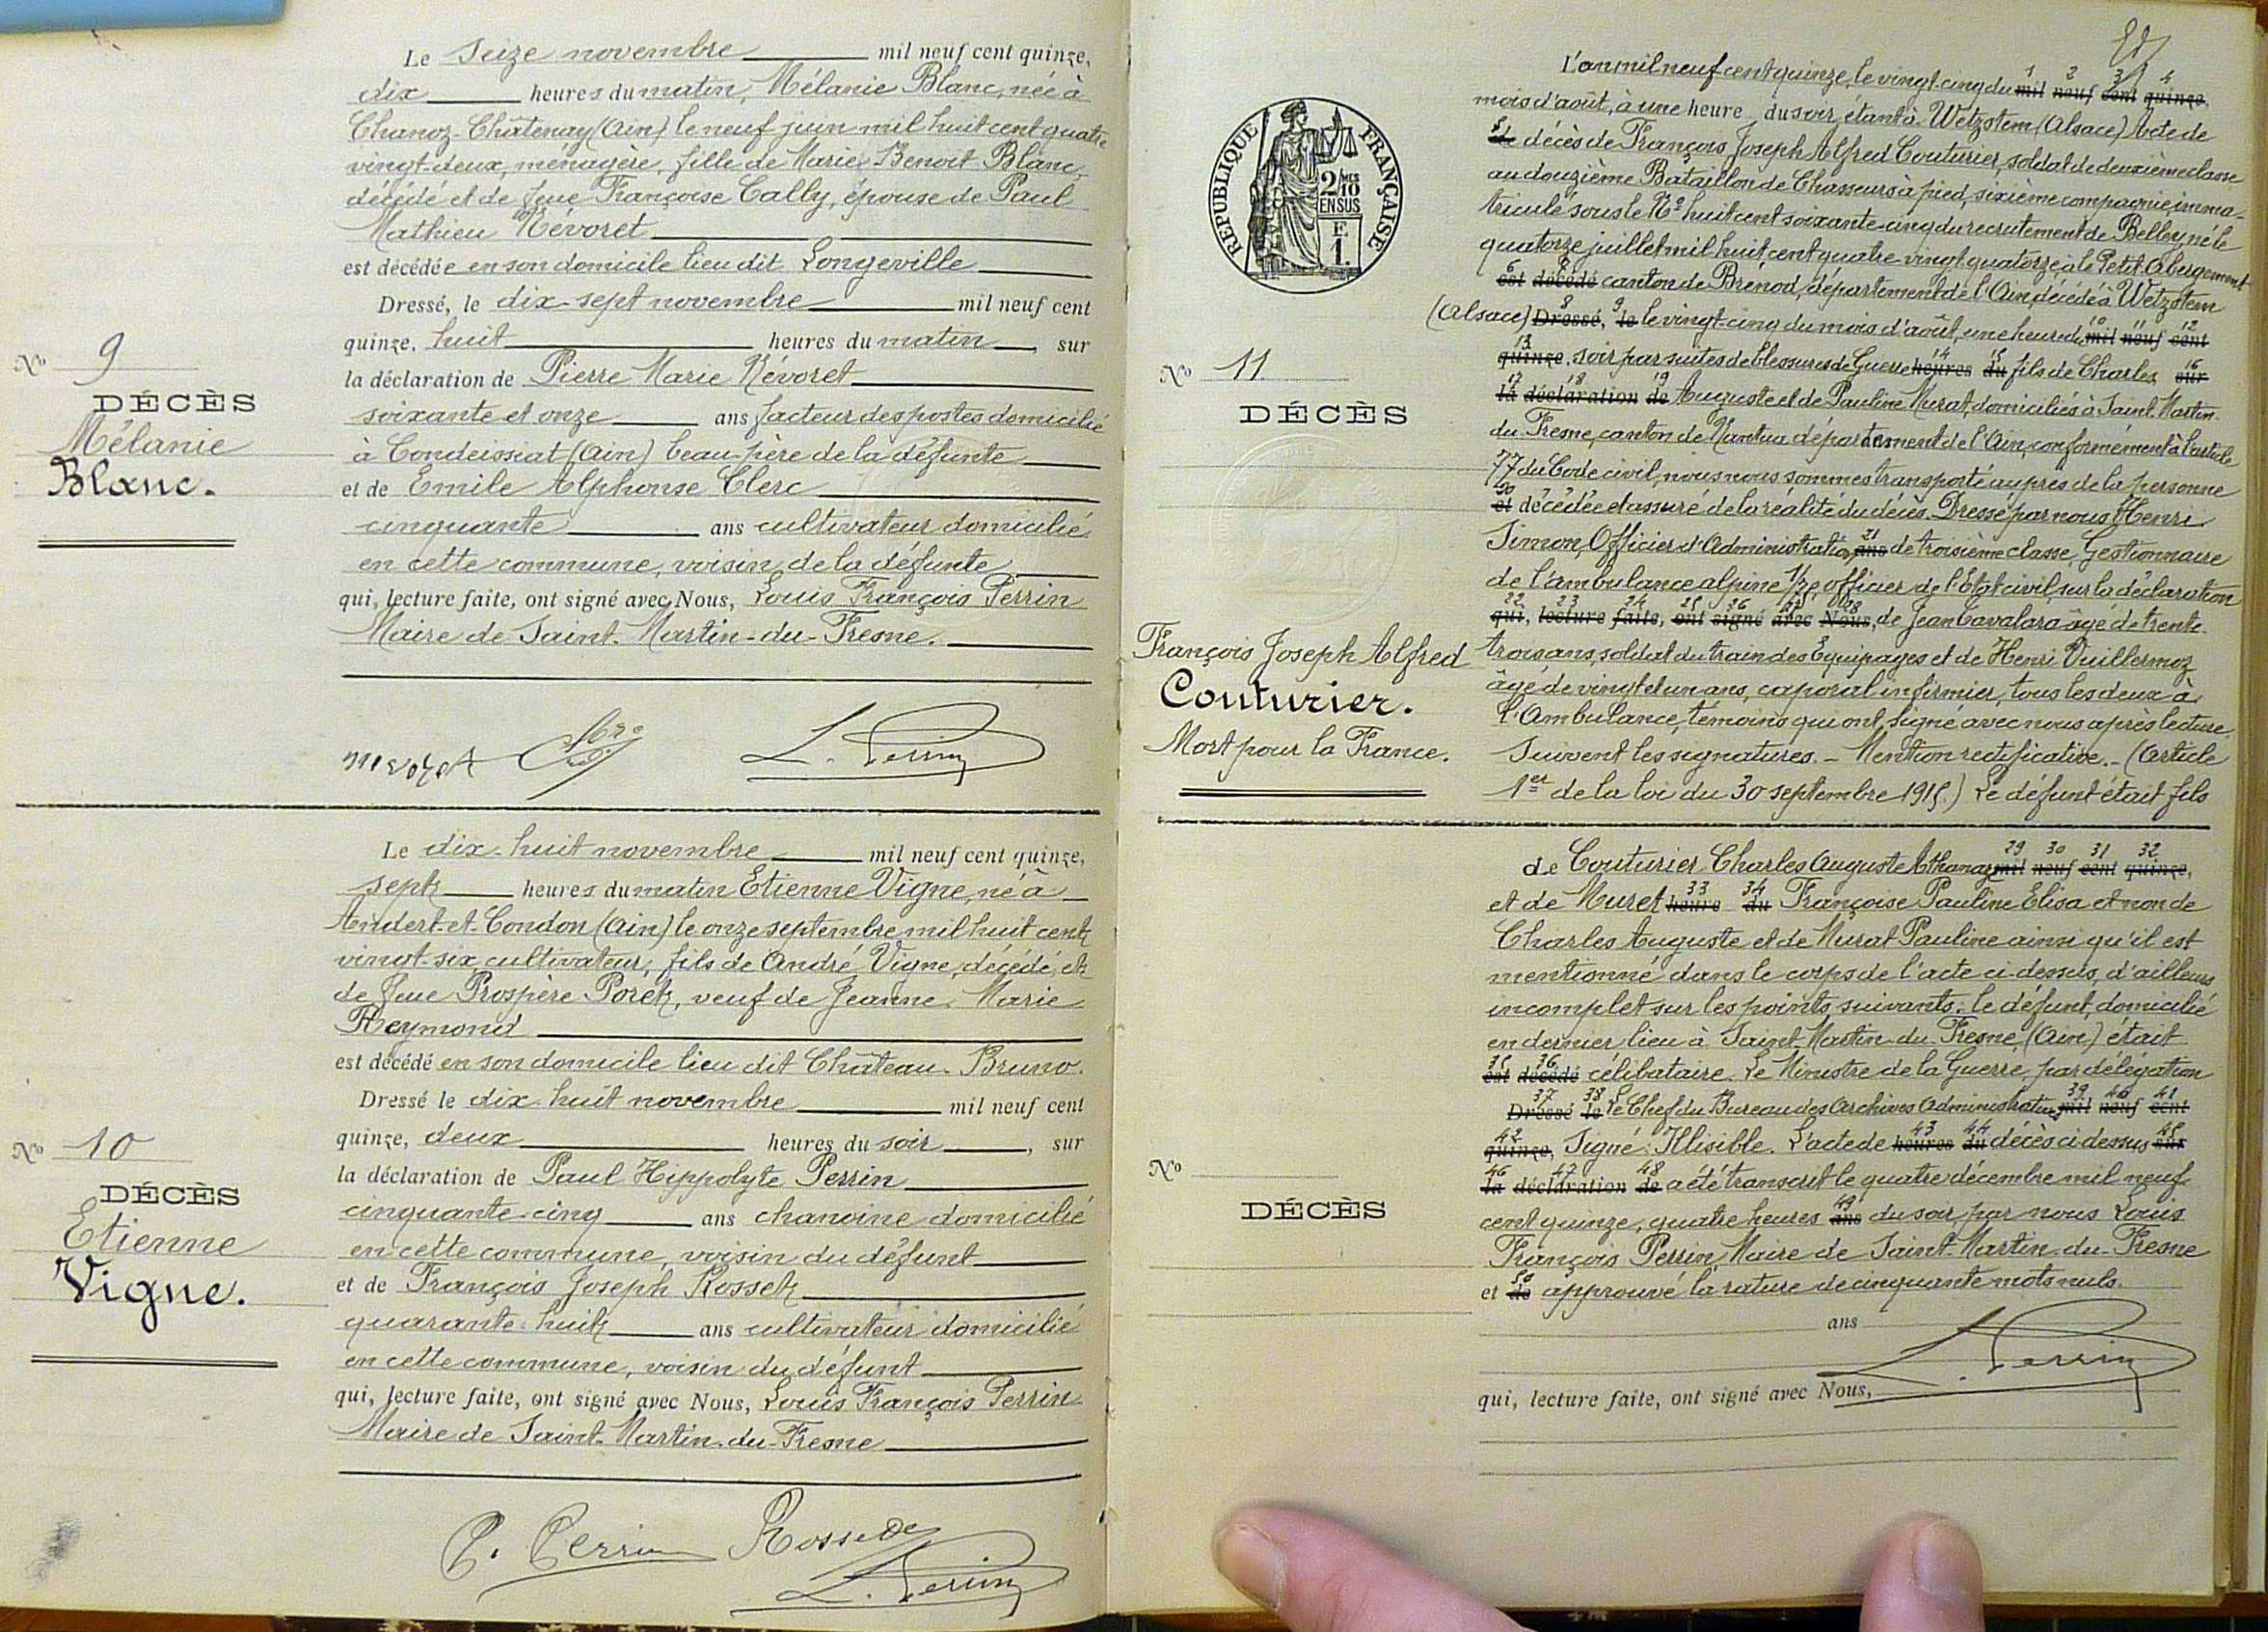 Le seize novembre mil neuf cent quinze,
dix heures du matin, Mélanie Blanc, née à
Chanoz-Châtenay (Ain) le neuf juin mil huit cent quatre
vingt-deux, ménagère, fille de Marie Benoit Blanc,
décédé et de feue Françoise Cally, épouse de Paul
Mathieu Névoret
est décédée en son domicile lieu dit Longeville
Dressé, le dix-sept novembre mil neuf cent
quinze, huit heures du matin, sur
la déclaration de Pierre Marie Névoret
soixante et onze ans facteur des postes domicilié
à Condeissiat (Ain) beau-père de la défunte
et de Emile Alphonse Clerc
cinquante ans cultivateur domicilié
en cette commune, voisin de la défunte
qui, lecture faite, ont signé avec Nous, Louis François Perrin
Maire de Saint-Martin-du-Fresne.
No 9
DÉCÈS
Mélanie
Blanc.
L. Perrin
Le dix-huit novembre mil neuf cent quinze,
sept heures du matin Etienne Vigne, né à
Andert-et-Condon (Ain) le onze septembre mil huit cent
vingt-six, cultivateur, fils de André Vigne, décédé, et
de feue Prospère Poret, veuf de Jeanne Marie
Reymond
est décédé en son domicile lieu dit Château-Bruno.
Dressé le dix-huit novembre mil neuf cent
quinze, deux heures du soir, sur
la déclaration de Paul Hippolyte Perrin
cinquante-cinq ans chanoine domicilié
en cette commune, voisin du défunt
et de François Joseph Rosset
quarante-huit ans cultivateur domicilié
en cette commune, voisin du défunt
qui, lecture faite, ont signé avec Nous, Louis François Perrin
Maire de Saint-Martin-du-Fresne
No 10
DÉCÈS
Etienne
Vigne.
P. Perrin Rosset
L. Perrin
RÉPUBLIQUE FRANÇAISE
2/10 MES
EN SUS
F.
1.
No 11
DÉCÈS
François Joseph Alfred
Couturier.
Mort pour la France.
L'an mil neuf cent quinze, le vingt-cinq du 1 2 3 4 mil neuf cent quinze,
mois d'août, à une heure du soir, étant à Wetzstem (Alsace) Acte de
5 Le décès de François Joseph Alfred Couturier, soldat de deuxième classe
au douzième Bataillon de Chasseurs à pied, sixième compagnie, imma-
triculé sous le No huit cent soixante-cinq du recrutement de Belley, né le
quatorze juillet mil huit cent quatre vingt quatorze à le Petit-Abergement
6 7 est décédé canton de Brénod, département de l'Ain, décédé à Wetzstem
(Alsace) 8 9 Dressé, le le vingt-cinq du mois d'août, une heure du 10 11 12 mil neuf cent
13 quinze, soir par suites de blessures de Guerre 14 15 heures du fils de Charles, 16 sur
17 18 19 la déclaration de Auguste et de Pauline Murat, domiciliés à Saint-Martin-
du-Fresne, canton de Nantua département de l'Ain, conformément à l'article
77 du Code civil, nous nous sommes transporté auprès de la personne
20 et décédée et assuré de la réalité du décès. Dressé par nous Henri
Simon, Officier d'Administration 21 ans de troisième classe, Gestionnaire
de l'ambulance alpine 1/75, officier de l'Etat civil, sur la déclaration
22 23 24 25 26 27 28 qui, lecture faite, ont signé avec Nous, de Jean Cavalara âgé de trente-
trois ans, soldat du train des Equipages et de Henri Vuillermoz
âgé de vingt et un ans, caporal infirmier, tous les deux à
l'Ambulance, témoins qui ont signé avec nous après lecture.
Suivent les signatures. - Mention rectificative. - (Article
1er de la loi du 30 septembre 1915.) Le défunt était fils
de Couturier Charles Auguste Athanaz 29 30 31 32 mil neuf cent quinze,
et de Muret 33 34 heure du Françoise Pauline Elisa et non de
Charles Auguste et de Murat Pauline ainsi qu'il est
mentionné dans le corps de l'acte ci-dessus, d'ailleurs
incomplet sur les points suivants: le défunt, domicilié
en dernier lieu à Saint-Martin-du-Fresne (Ain) était
35 36 est décédé célibataire. Le Ministre de la Guerre, par délégation
37 38 Dressé le Le Chef du Bureau des Archives Administratives 39 40 41 mil neuf cent
42 quinze, Signé: Illisible. L'acte de 43 44 heures du décès ci-dessus 45 sur
46 47 48 la déclaration de a été transcrit le quatre décembre mil neuf
cent quinze, quatre heures 49 ans du soir, par nous Louis
François Perrin Maire de Saint-Martin-du-Fresne
et 50 de approuvé la rature de cinquante mots nuls.
ans
L. Perrin
qui, lecture faite, ont signé avec Nous,
No
DÉCÈS